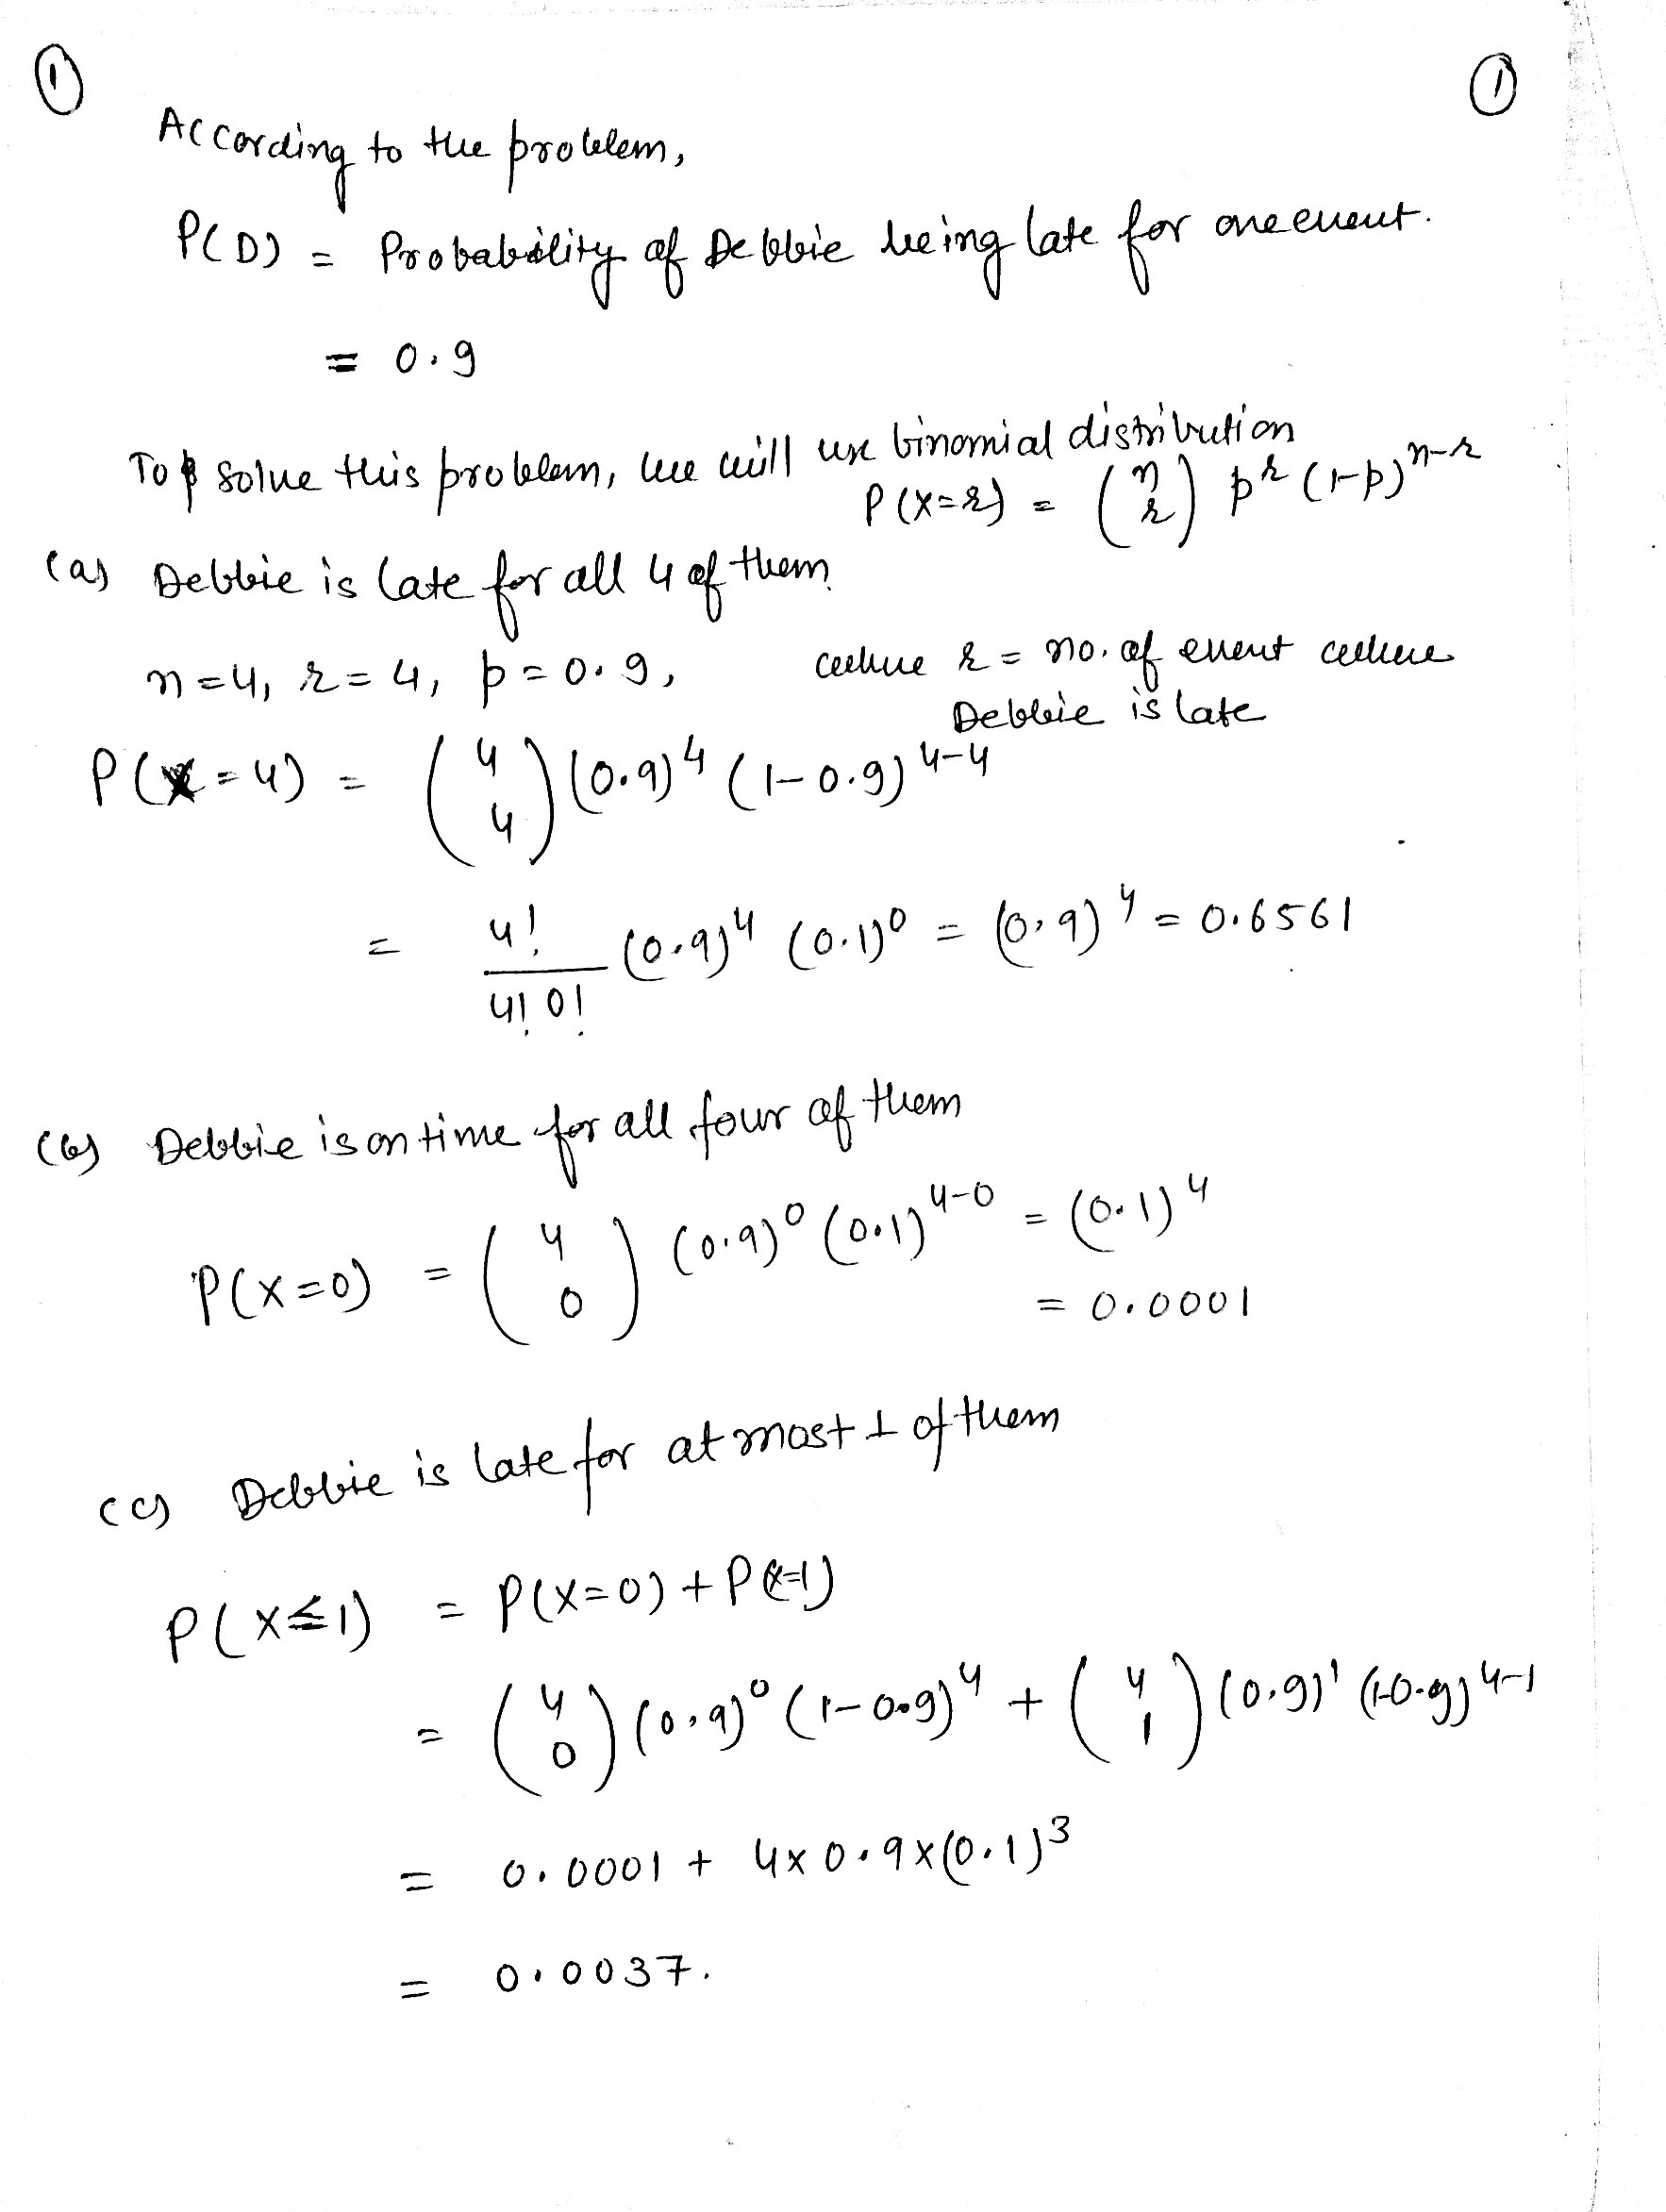 ① ①
According to the problem,
P(D) = Probability of Debbie being late for one event.
= 0.9
To solve this problem, we will use binomial distribution
P(X=r) = (n r) p^r (1-p)^n-r
(a) Debbie is late for all 4 of them.
n=4, r=4, p=0.9, where r = no. of event where
Debbie is late
P(X=4) = (4 4) (0.9)^4 (1-0.9)^4-4
= 4!/4!0! (0.9)^4 (0.1)^0 = (0.9)^4 = 0.6561
(b) Debbie is on time for all four of them
P(X=0) = (4 0) (0.9)^0 (0.1)^4-0 = (0.1)^4
= 0.0001
(c) Debbie is late for at most 1 of them
P(X≤1) = P(X=0) + P(X=1)
= (4 0) (0.9)^0 (1-0.9)^4 + (4 1) (0.9)^1 (1-0.9)^4-1
= 0.0001 + 4x0.9x(0.1)^3
= 0.0037.